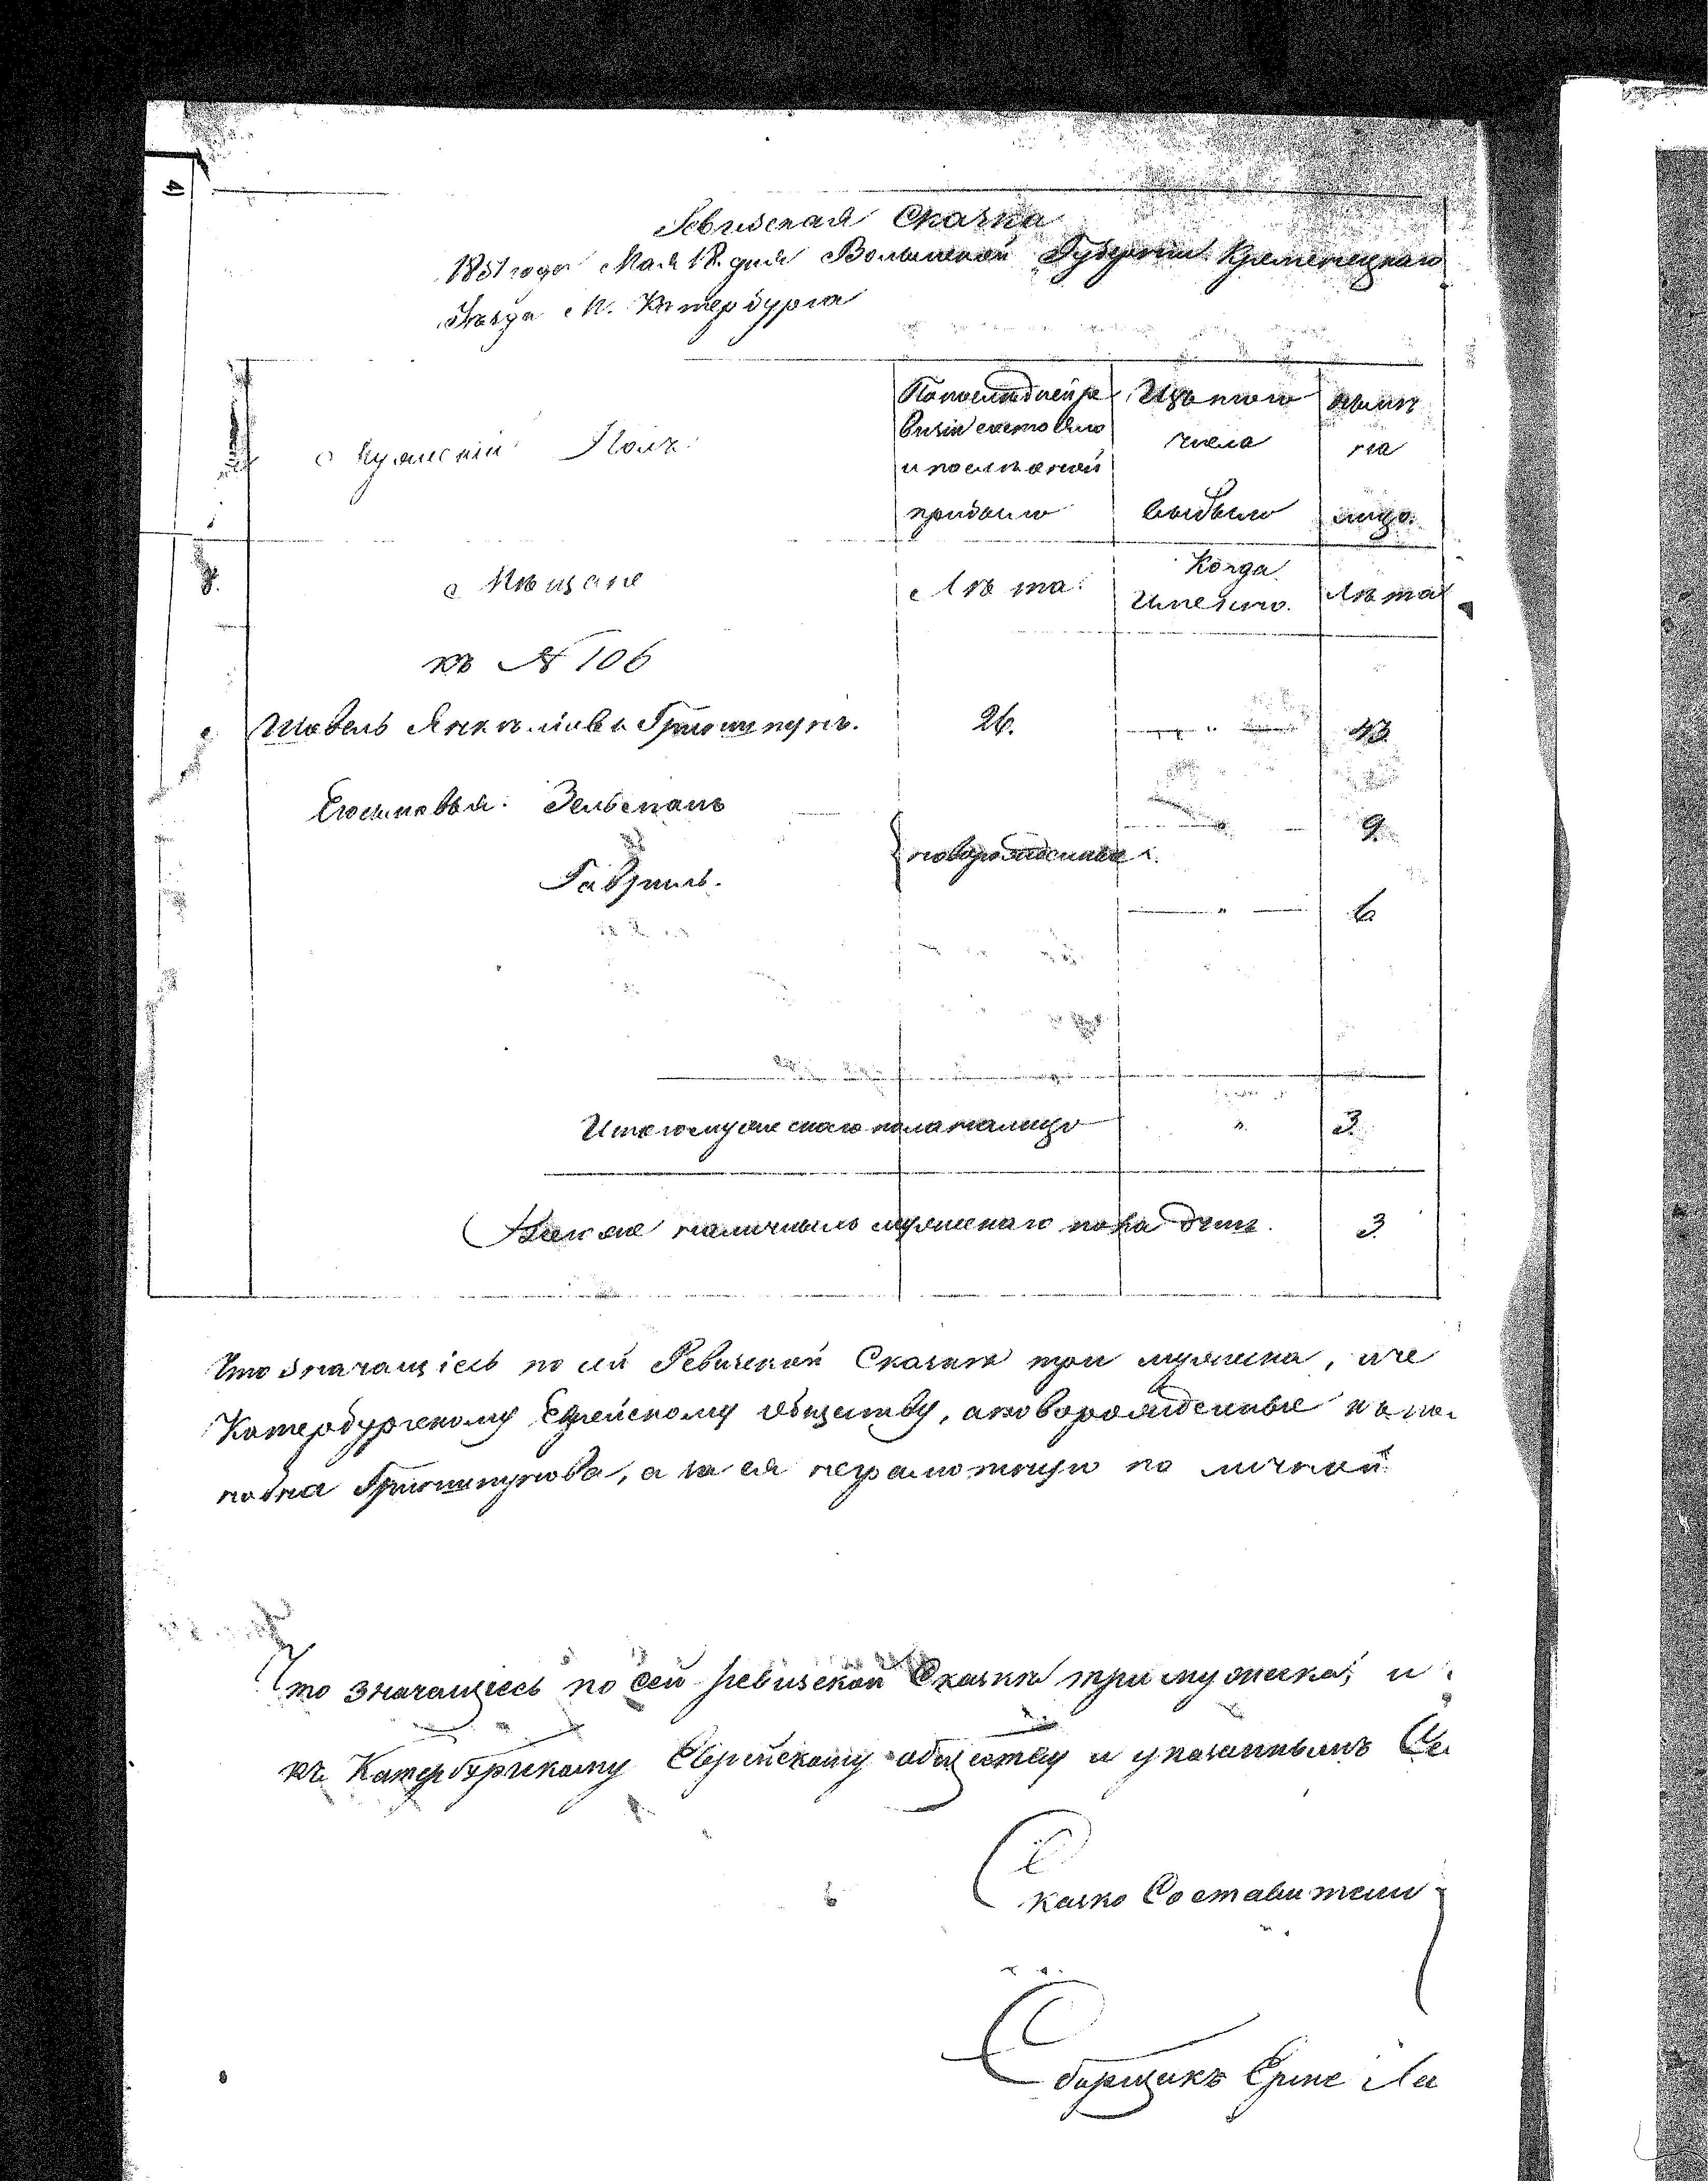 Ревизская Сказка
1851 года Мая 18 дня Волынской Губернии Кременецкаго
Уезда М. Катербурга
Мужескій Полъ.
По последней ре
визіи состояло
и после оной
прибыло
Изъ того
числа
выбыло
ныне
на
лицо.
Мещане
Лета.
Когда
Именно.
Лета
къ № 106
26.
43
Сыновья:
9
новорожденные
Гавріиль.
6
Итого мужескаго пола налицо " 3
наличныхъ мужескаго пола душъ. 3
Что значащіесь по сей Ревизской Сказке три мужеска, и не
Катербургскому Еврейскому обществу, а новорожденные
а за ея неграмотную по личной
Что значащіесь по сей ревизской Сказке три мужеска, и
къ Катербургскому Еврейскому обществу и указаннымъ
Сказко Составители
Сборщикъ